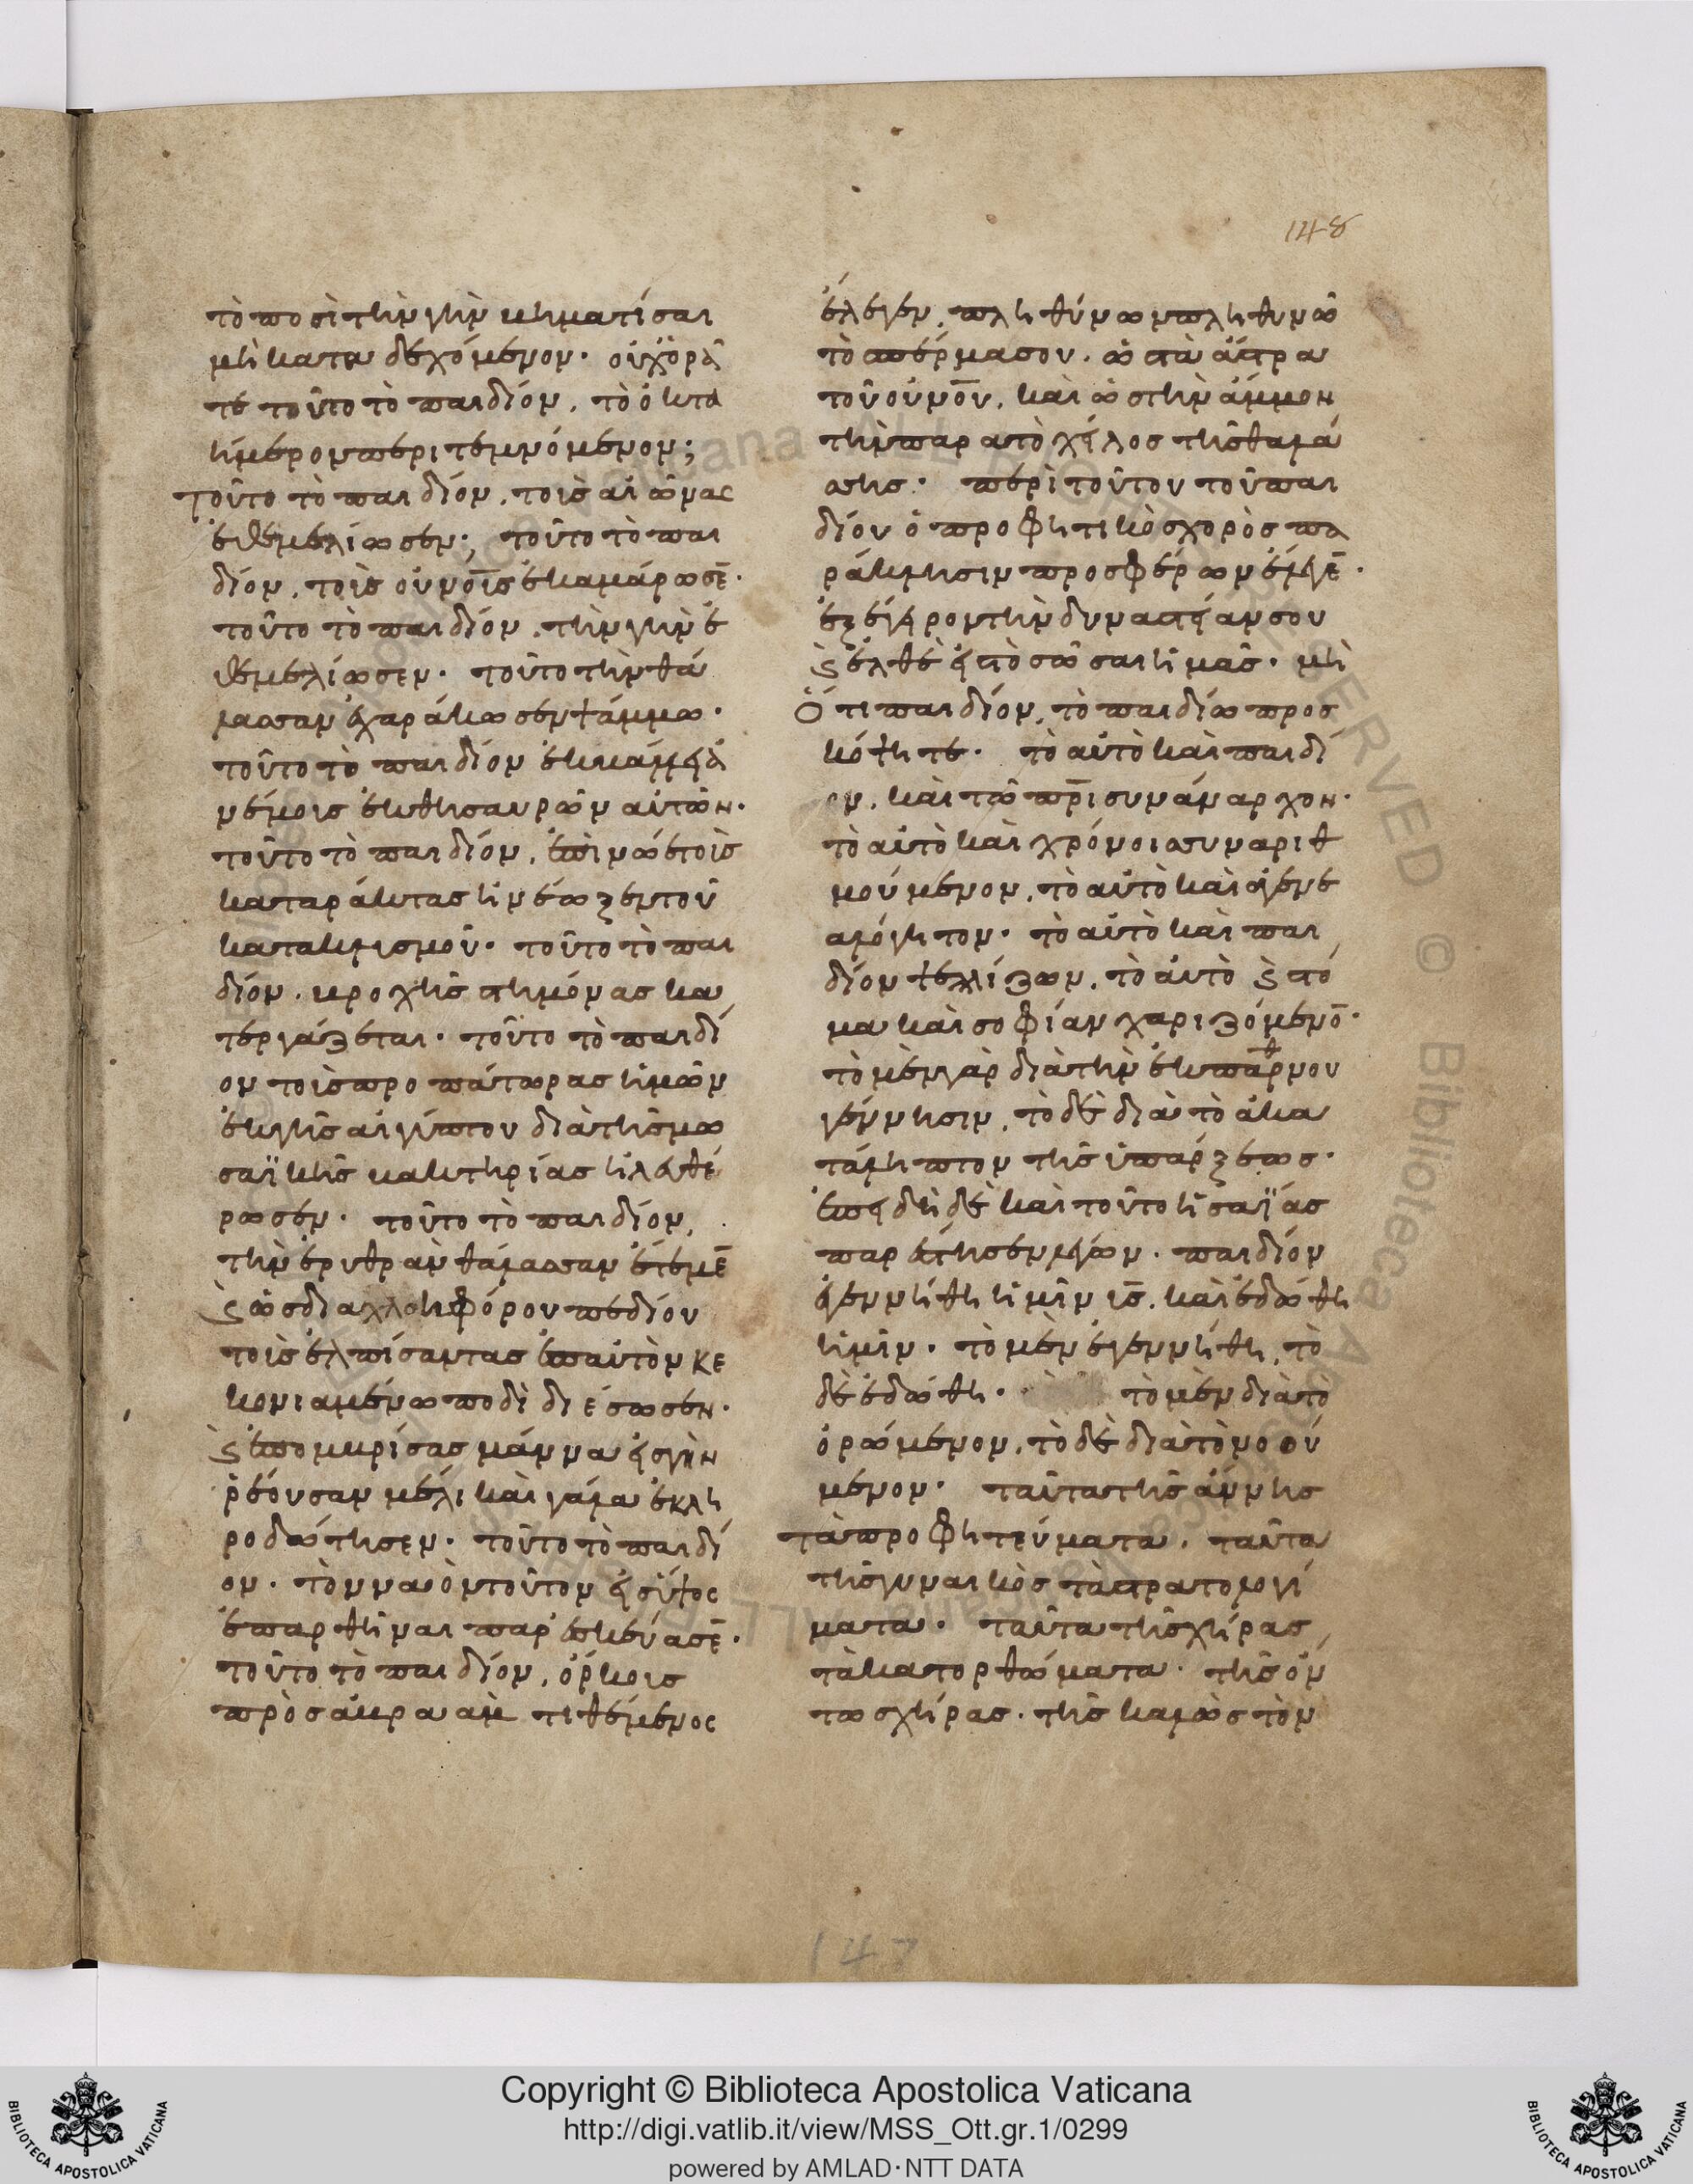 148
τὸ ποσὶ τὴν γῆν κληματίσαι
μὴ καταδεχόμενον· οὐχ ὁρᾶ
τε τοῦτο τὸ παιδίον, τὸ ὀκτα
ήμερον περιτεμνόμενον;
τοῦτο τὸ παιδίον, τοὺς αἰῶνας
ἐθεμελίωσεν; τοῦτο τὸ παι
δίον, τοὺς οὐνοῖς ἐκαμάρωσε̄·
τοῦτο τὸ παιδίον, τὴν γῆν ἐ
θεμελίωσεν· τοῦτο τὴν θά
λασσαν ἐχαράκωσεν ψάμμω·
τοῦτο τὸ παιδίον
ἐκ θησαυρῶν αὐτῶν·
τοῦτο τὸ παιδίον, ἐπὶ νῶε τοὺς
καταράκτας ἠνέωξεν τοῦ
κατακλυσμοῦ· τοῦτο τὸ παι
δίον, κρο χῆς στιμόνας κα
τεργάζεται· τοῦτο τὸ παιδί
ον τοὺς προπάτωρας ἡμῶν
ἐκ γῆς αἰγύπτου διὰ τῆς μω
σαϊκῆς καλυτηρίας ἠλευθέ
ρωσεν· τοῦτο τὸ παιδίον,
τὴν ἐρυθρὰν θάλασσαν ἔτεμε̄
ϗ ὡς διὰ χλοηφόρου πεδίου
τοὺς ἐλπίσαντας ἐπ αὐτὸν κε
κονιαμένω ποδὶ διέσωσεν·
ϗ ἐπομβρίσας μάννα εἰς γῆν
ῥέουσαν μέλι καὶ γάλα ἐκλη
ροδώτησεν· τοῦτο τὸ παιδί
ον· τὸν ναὸν τοῦτον εἰς ὕψος
ἐπαρθῆναι παρεσκεύασε̄·
τοῦτο τὸ παιδίον, ὅρκοις
πρὸς ἁβραὰμ τιθέμενος
ἔλεγεν, πληθύνων πληθυνῶ
τὸ σπέρμα σου, ὡς τὰ ἄστρα
τοῦ οὐνοῦ, καὶ ὡς τὴν ἄμμον
τὴν παρα τὸ χεῖλος τῆς θαλά
σσης· περὶ τούτου τοῦ παι
δίου ὁ προφητικὸς χορὸς πα
ράκλησιν προσφέρων ἔλεγε̄·
ἐξέγειρον τὴν δυναστείαν σου
ϗ ἐλθὲ εἰς τὸ σῶσαι ἡμᾶς· μὴ
ὅτι παιδίον, τὸ παιδίω προσ
κόψητε· τὸ αὐτὸ καὶ παιδί
ον, καὶ τῶ πρ̄ι συνάναρχον·
τὸ αὐτὸ καὶ χρόνοις συναριθ
μούμενον, τὸ αὐτὸ καὶ ἀγενε
αλόγητον· τὸ αὐτὸ καὶ παι
δίον ψελλίζων, τὸ αὐτὸ ϗ στό
μα καὶ σοφίαν χαριζόμενο̄·
τὸ μὲν γὰρ διὰ τὴν ἐκ παρθνου
γέννησιν, τὸ δὲ διὰ τὸ ἀκα
τάληπτον τῆς ὑπάρξεως·
ἐπειδὴ δὲ καὶ τοῦτο ἡσαΐας
παρέστησεν λέγων· παιδίον
ἐγεννήθη ἡμῖν υς̄, καὶ ἐδώθη
ἡμῖν· τὸ μὲν ἐγεννήθη, τὸ
δὲ ἐδώθη· τὸ μὲν διὰ τὸ
ὁρώμενον, τὸ δὲ διὰ τὸ νοού
μενον· ταῦτα τῆς ἄννης
τὰ προφητεύματα, ταῦτα
τῆς γυναικὸς τὰ στρατολογί
ματα· ταῦτα τῆς χήρας
τὰ κατορθώματα· τῆς ὄν
τως χήρας, τῆς καλῶς τὸν
147
Copyright © Biblioteca Apostolica Vaticana
http://digi.vatlib.it/view/MSS_Ott.gr.1/0299
powered by AMLAD·NTT DATA
BIBLIOTECA APOSTOLICA VATICANA
BIBLIOTECA APOSTOLICA VATICANA